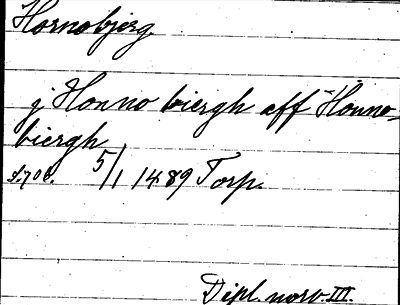 Hornobjerg
j Honno biergh aff Honno-
biergh
S. 700. 5/1 1489 Torp.
Dipl. norv. III.